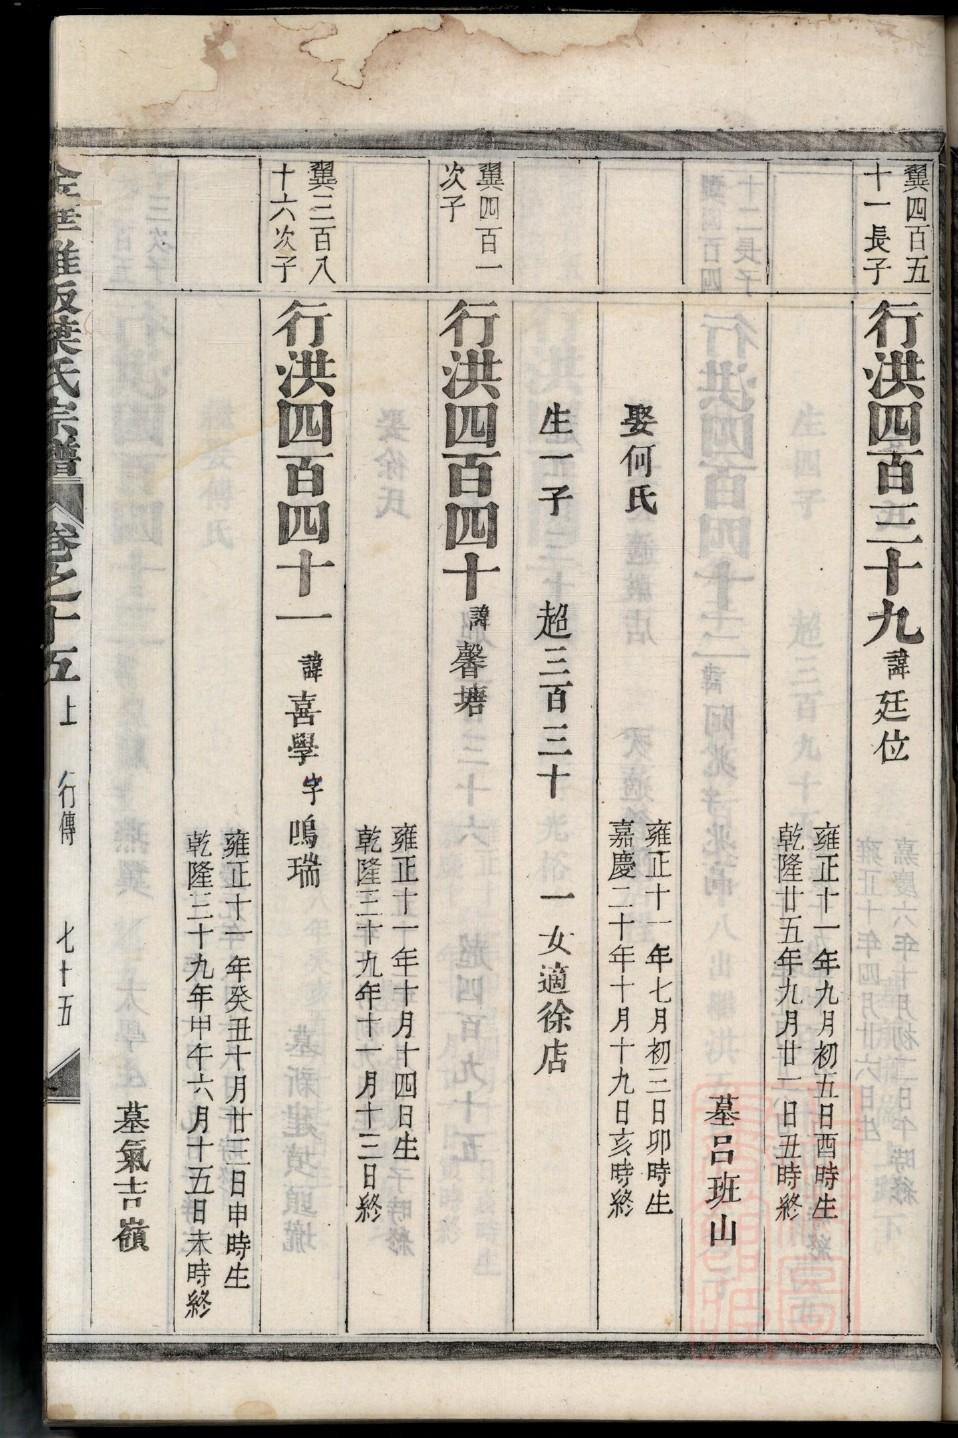 翼四百五
十一長子
行洪四百三十九 諱廷位
雍正十一年九月初五日酉時生
乾隆廿五年九月廿一日丑時終
墓呂班山
娶何氏
雍正十一年七月初三日卯時生
嘉慶二十年十月十九日亥時終
生一子 超三百三十 一女適徐店
翼四百一
次子
行洪四百四十 諱馨塘
雍正十一年十月十四日生
乾隆三十九年十一月十三日終
翼三百八
十六次子
行洪四百四十一 諱喜學 字鳴瑞
雍正十一年癸丑十月廿三日申時生
乾隆三十九年甲午六月十五日未時終
墓氣吉嶺
金華雅畈葉氏宗譜 卷之十五 上 行傳 七十五